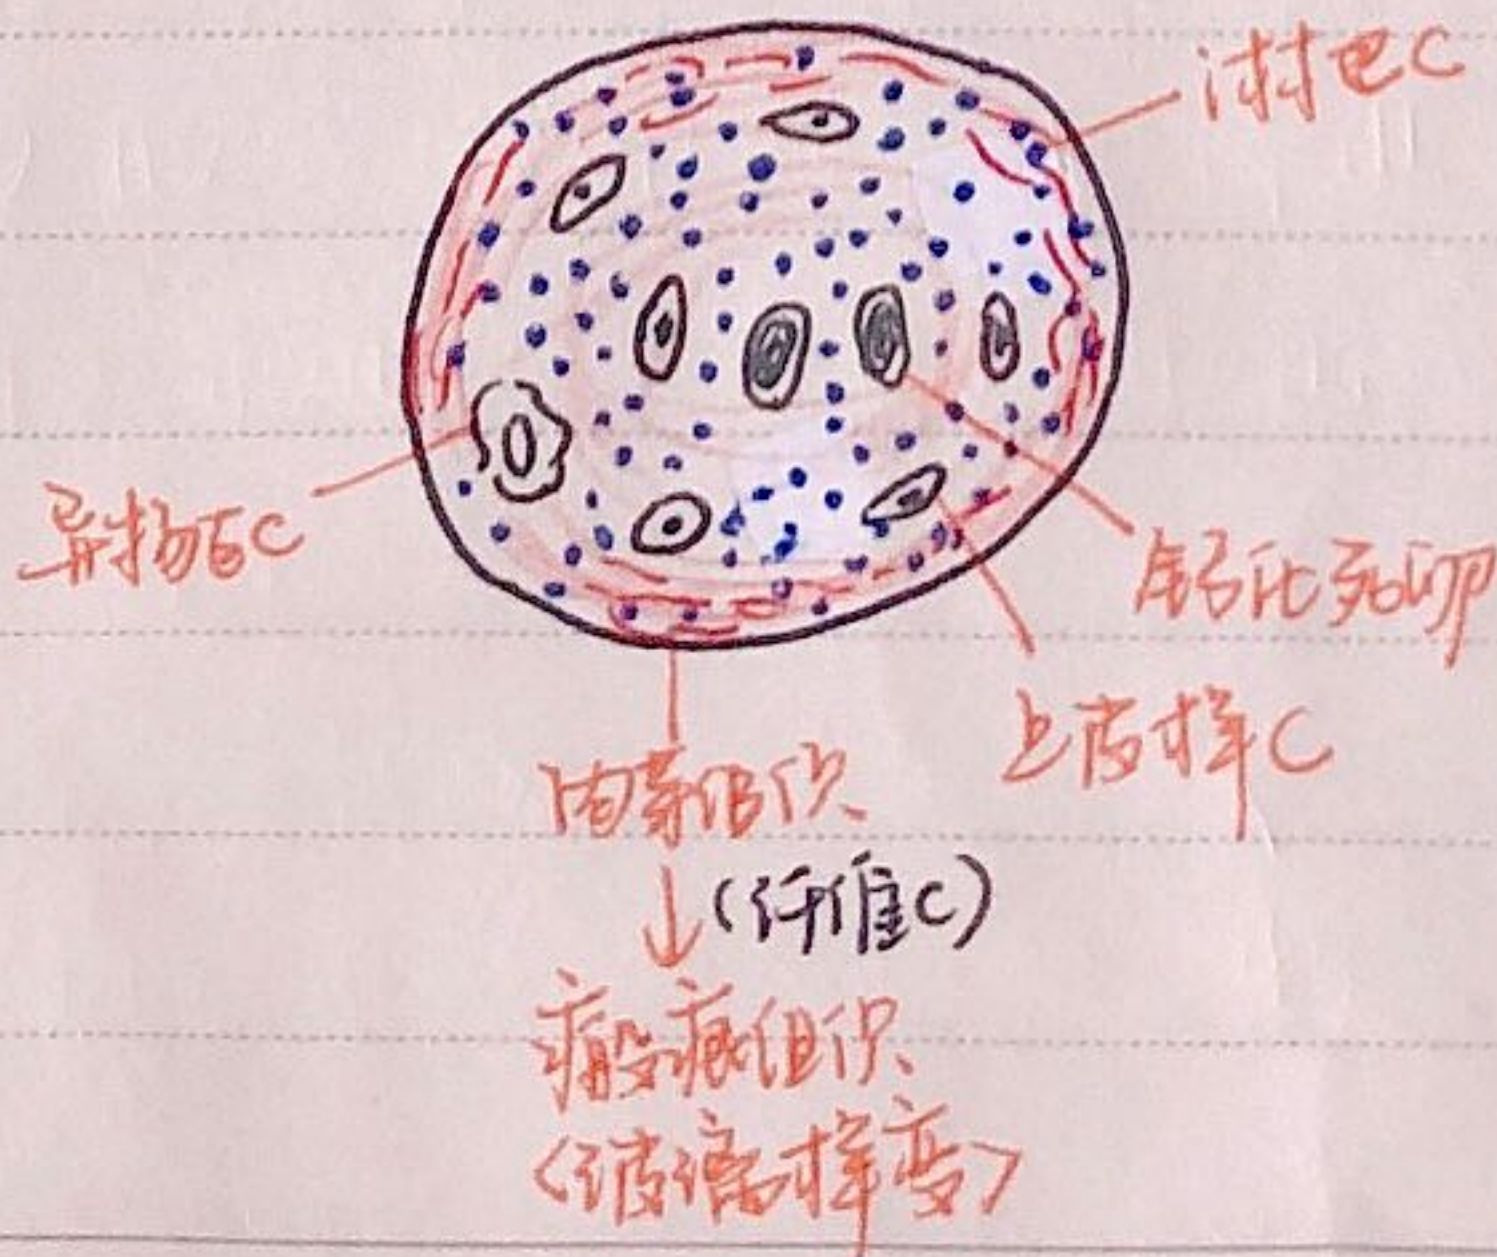 淋巴C
异物巨C
钙化死卵
上皮样C
肉芽组织
↓(纤维C)
瘢痕组织
<玻璃样变>